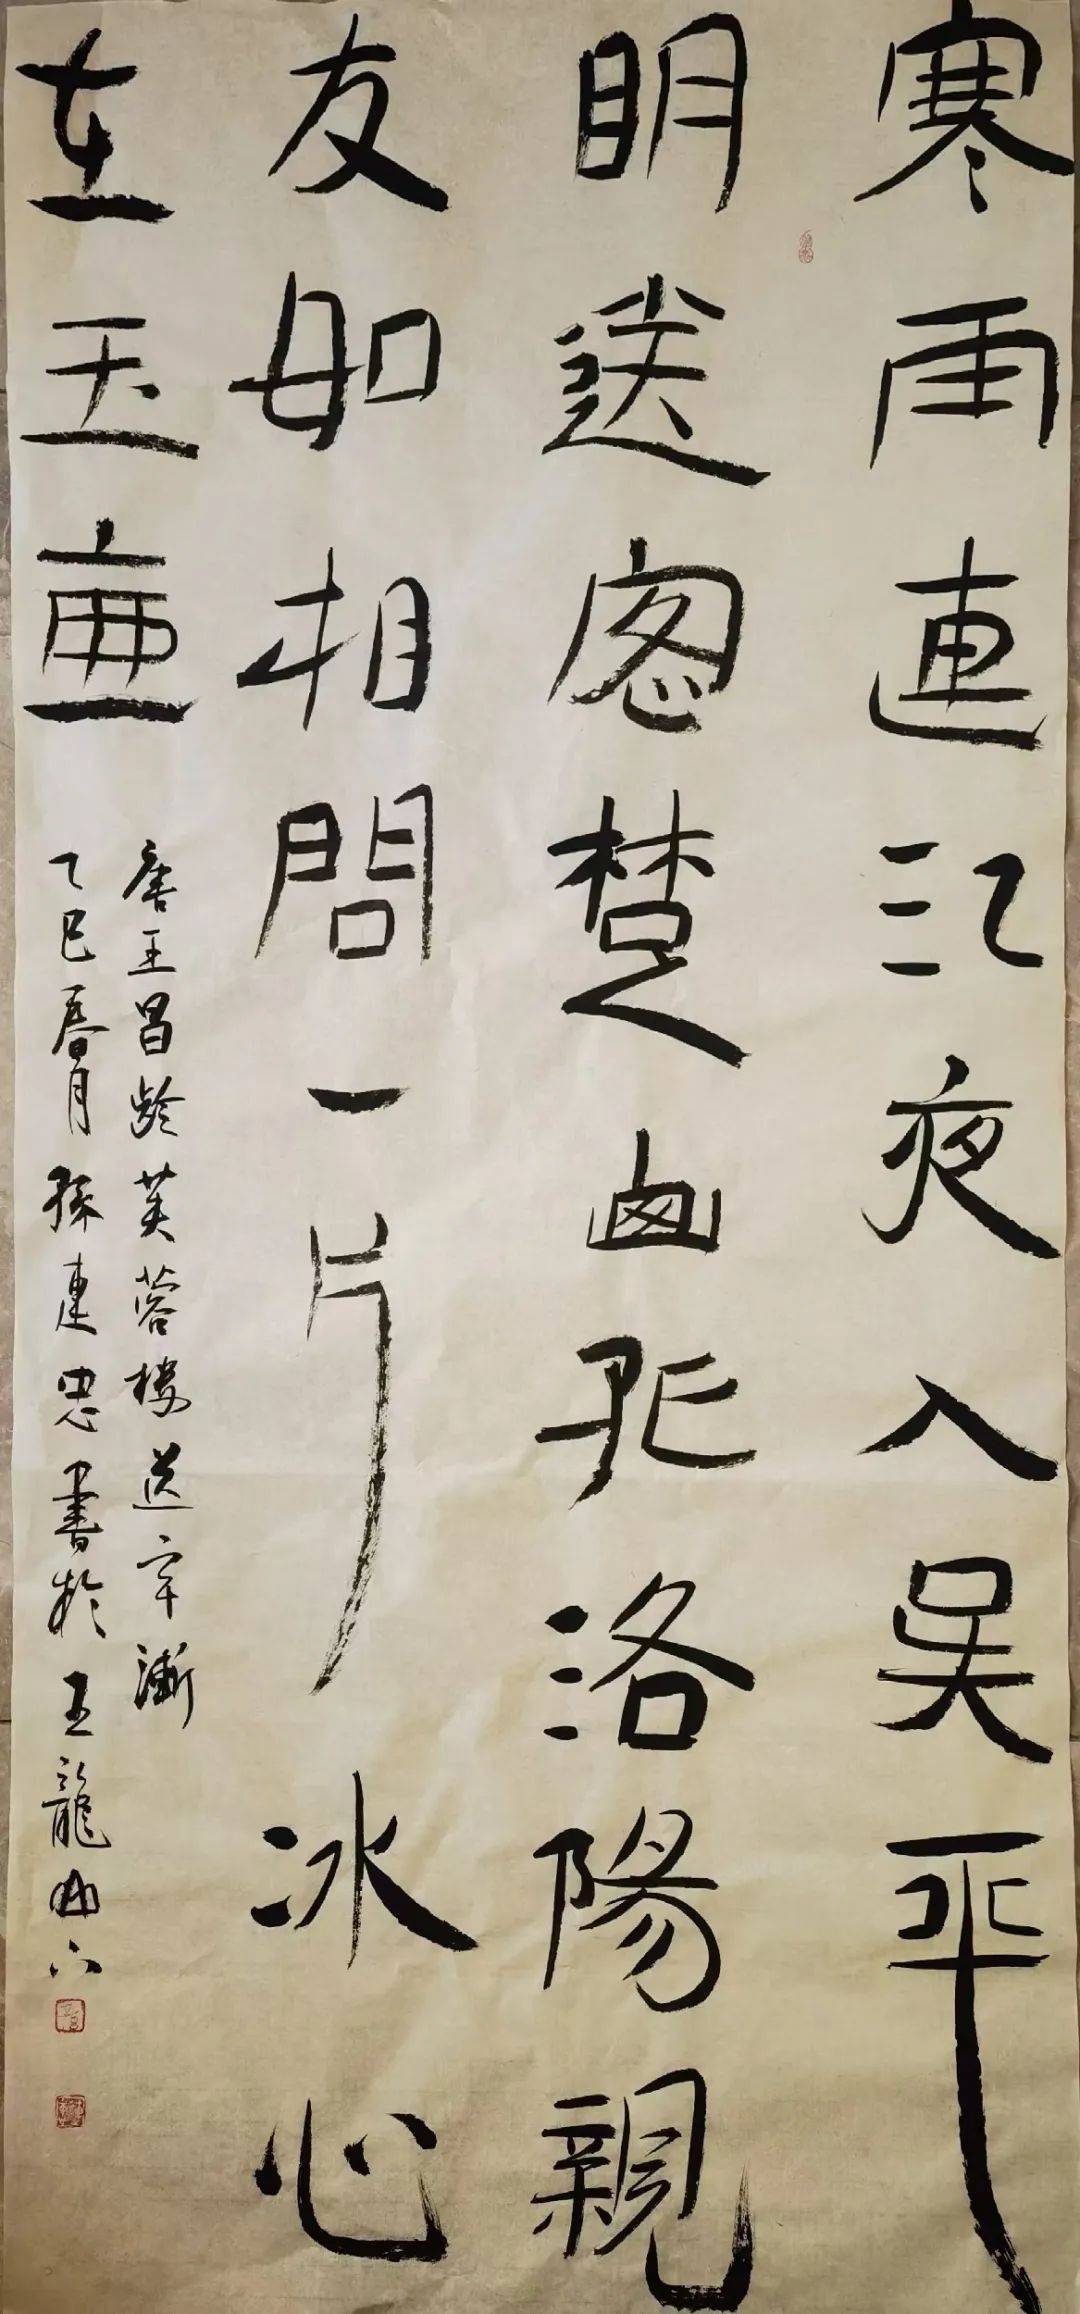 寒雨連江夜入吳平
明送客楚山孤洛陽親
友如相問一片冰心
在玉壺
唐王昌齡芙蓉樓送辛漸
乙巳春月孫連忠書於龍山下